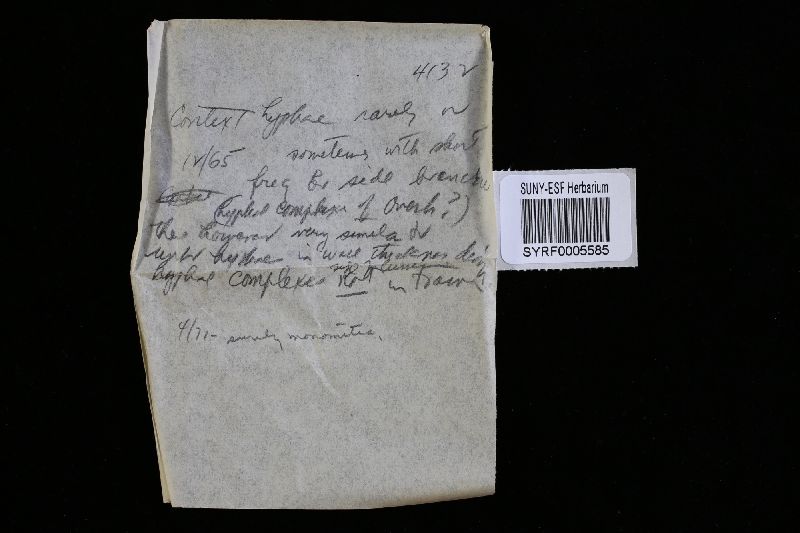 4132
Context hyphae rarely or
12/65 sometimes with short
freq to side branches
(hyphal complexes of Overh.?)
these however very similar to
hyphae in wall thickness
hyphal complexes not in trama
4/71 - surely monomitic.
SUNY-ESF Herbarium
SYRF0005585